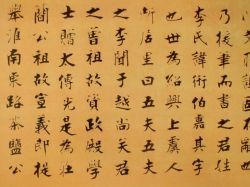 乃事而書之君姓
李氏諱衎伯嘉其字
也世為紹興上虞人
所居里曰五夫五夫
之李聞于越尚矣君
之曾祖故資政殿學
士贈太傅光是為莊
簡公祖故宣義郎提
舉淮南東路茶鹽公